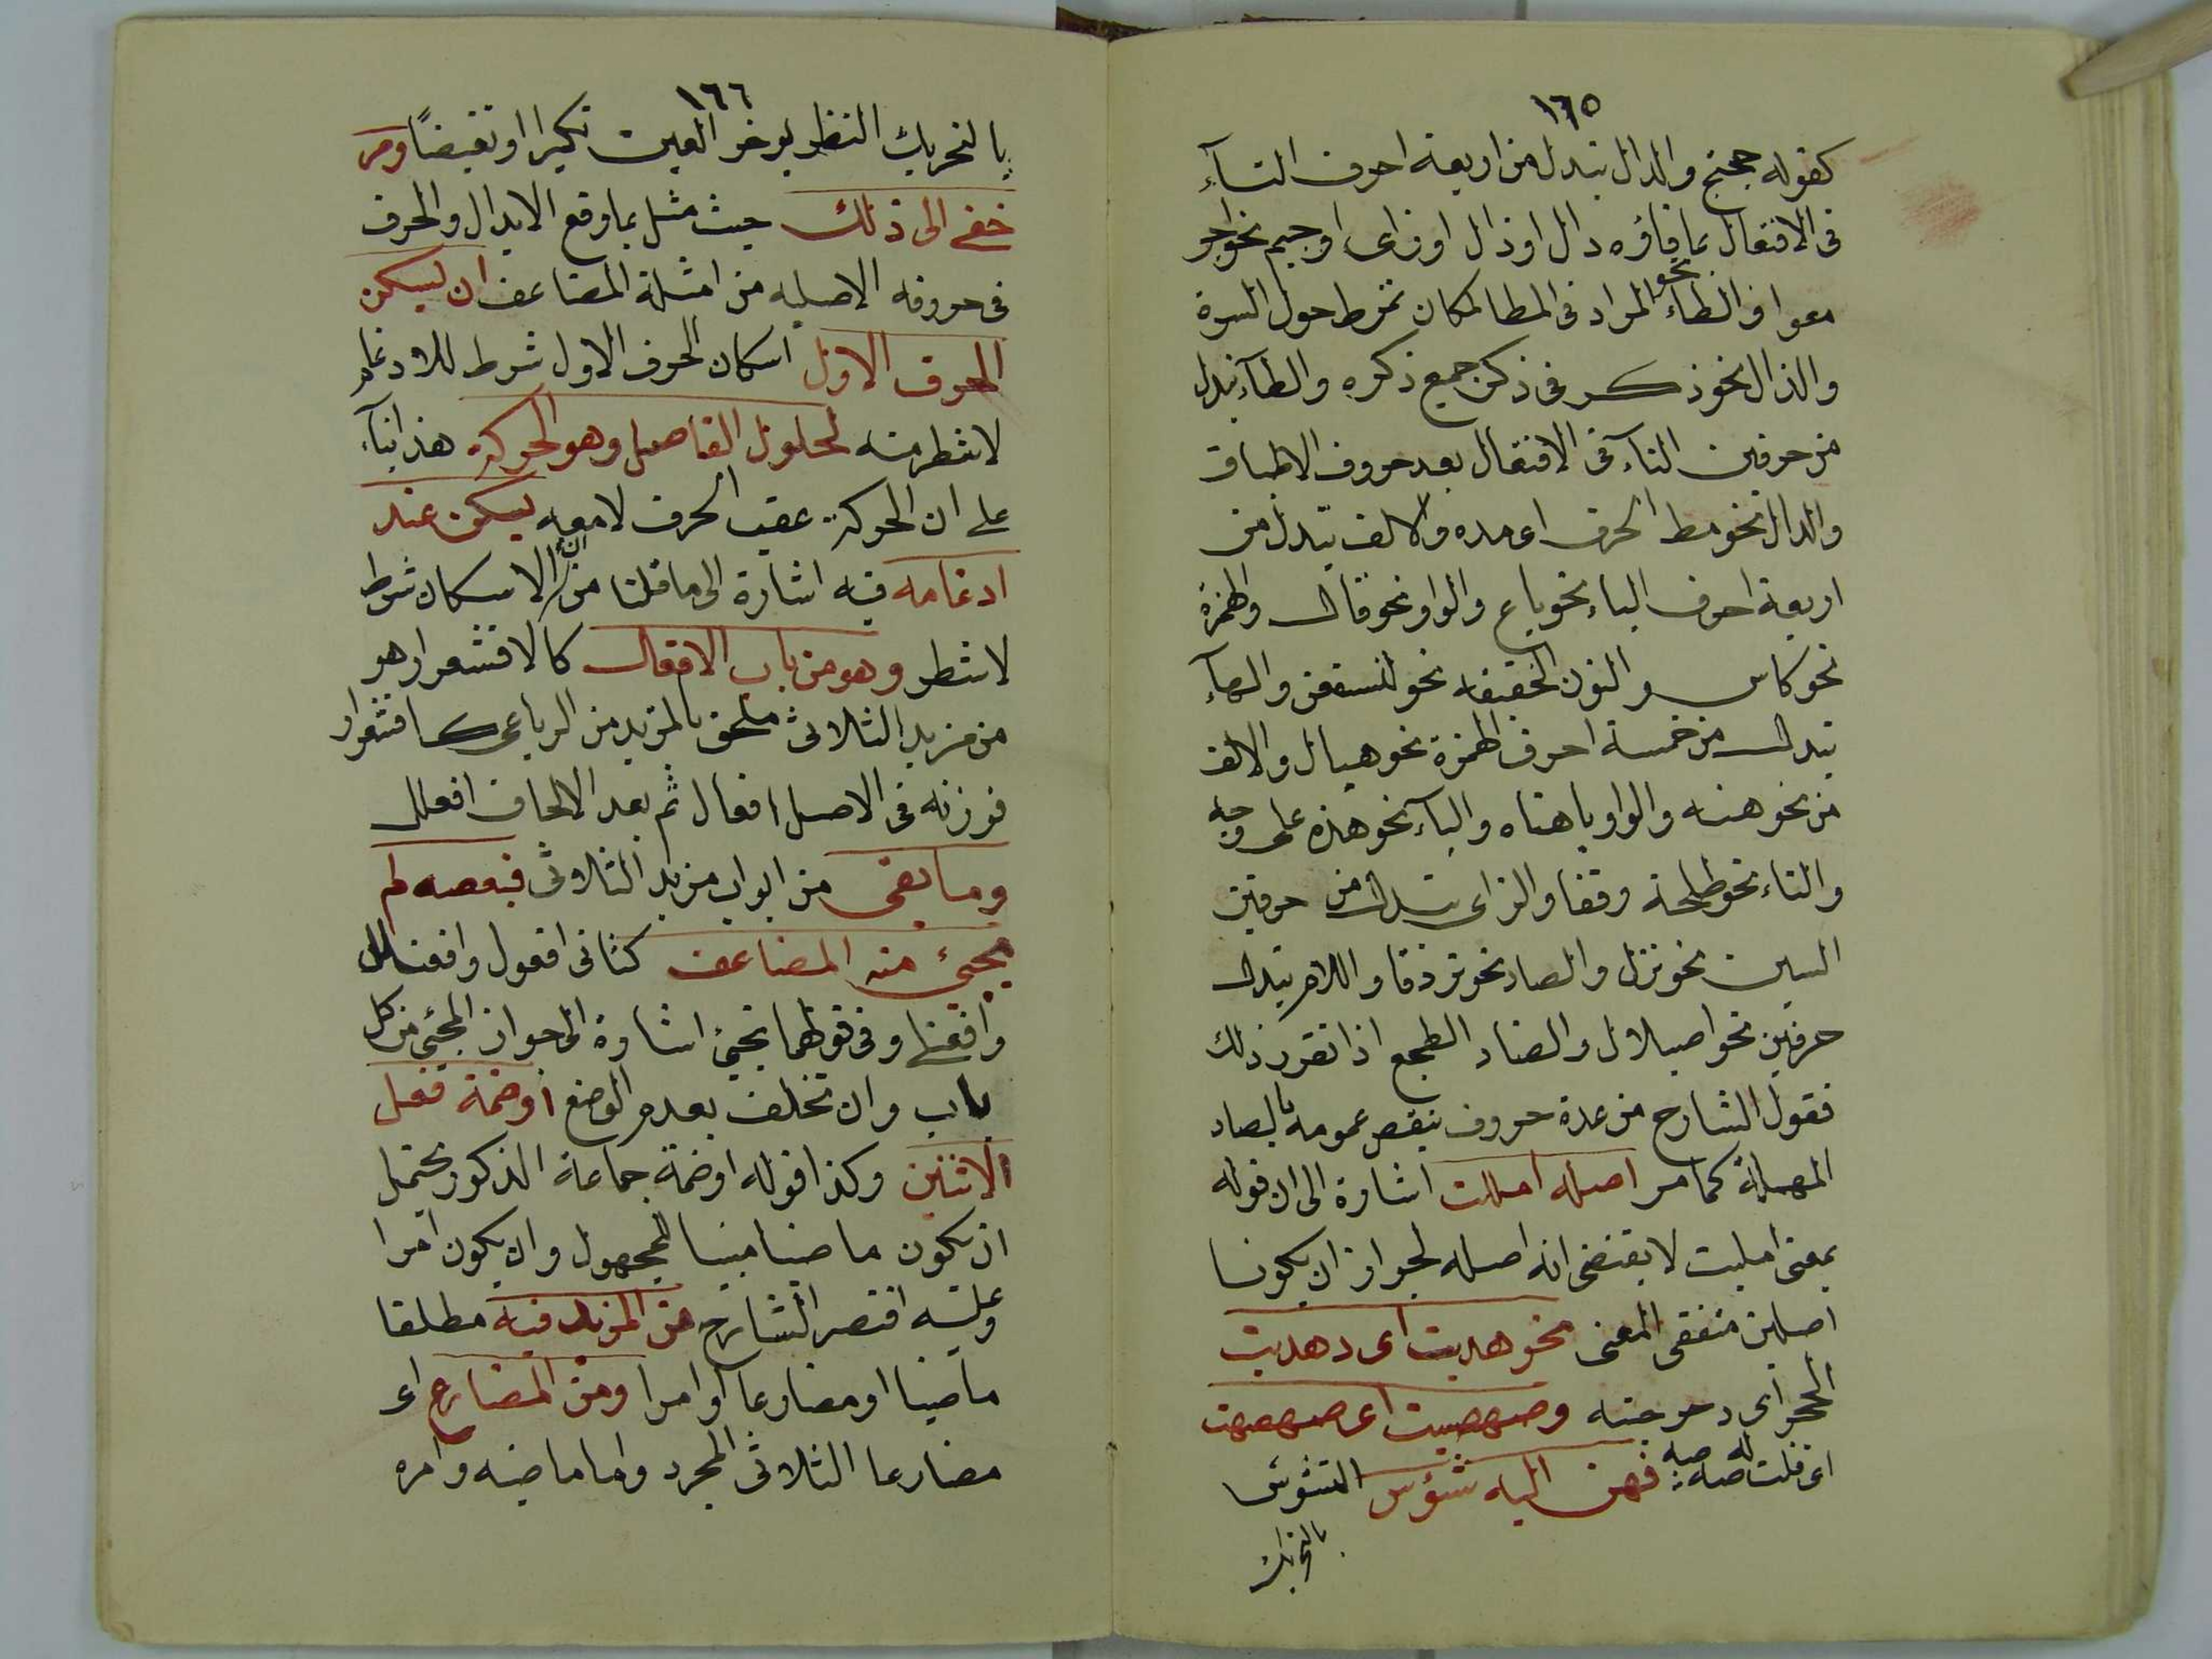 ١٦٥
كقوله حجتج والدال تبدل من اربعة احرف التآء
فى الافتعال مما فاؤه دال او ذال او زاى او جيم نحو اجد
معوا والطاء نحو المراد فى المطا لمكان تمرط حول السرة
والذال نحو ذكر فى ذكر جميع ذكره والطآء تبدل
من حرفين التآء فى الافتعال بعد حروف الاطباق
والدال نحو مط الحرف اى مده والالف تبدل من
اربعة احرف الياء نحو باع والواو نحو قال والهمزة
نحو كاس والنون الخفيفه نحو لنسفعن والهآء
تبدل من خمسة احرف الهمزة نحو هياك والالف
من نحو هنه والواو يا هناه واليآء نحو هذه على وجه
والتاء نحو طلحة وقفا والزاى تبدل من حرفين
السين نحو نزل والصاد نحو يزدق واللام تبدل
حرفين نحو اصيلال والضاد الطجع اذا تقرر ذلك
فقول الشارح من عدة حروف ينقص عمومه بالصاد
المهملة كما مر اصله امللت اشارة الى ان قوله
بمعنى امليت لا يقتضى انه اصله لجواز ان يكونا
اصلين متفقى المعنى نحو هديت اى دهديت
الحجر اى دحرجته وصهصيت اى صهصهت
اى قلت له صه صه فهن اليه شؤس الشوس
بالتحريك
١٦٦
بالتحريك النظر بموخر العين تكبرا او تغيضًا ومر
خفى الى ذلك حيث مثل بما وقع الابدال والحرف
فى حروفه الاصليه من امثلة المضاعف ان يسكن
الحرف الاول اسكان الحرف الاول شرط للادغام
لا شطر منه لحلول الفاصل وهو الحركة هذا بنآء
على ان الحركة عقيب الحرف لا معه يسكن عند
ادغامه فيه اشارة الى ما قلنا من ان الاسكان شرط
لا شطر وهو من باب الافعال كالاقشعرار هو
من مزيد الثلاثى ملحق بالمزيد من الرباعى كاقشعرار
فوزنه فى الاصل افعال ثم بعد الالحاق افعلل
وما بقى من ابواب مزيد الثلاثى فبعضه لم
يجئ منه المضاعف كثانى افعول وافعنلل
وافعنلى وفى قولهما يجئ اشارة الى جواز المجئ من كل
باب وان تخلف بعدم الوضع او ضمة فعل
الاثنين وكذا قوله او ضمة جماعة الذكور يحتمل
ان يكون ماضيا مبنيا للمجهول وان يكون امرا
وعليه اقتصر الشارح من المزيد فيه مطلقا
ماضيا او مضارعا او امرا ومن المضارع اى
مضارعا الثلاثى المجرد واما ماضيه وامره